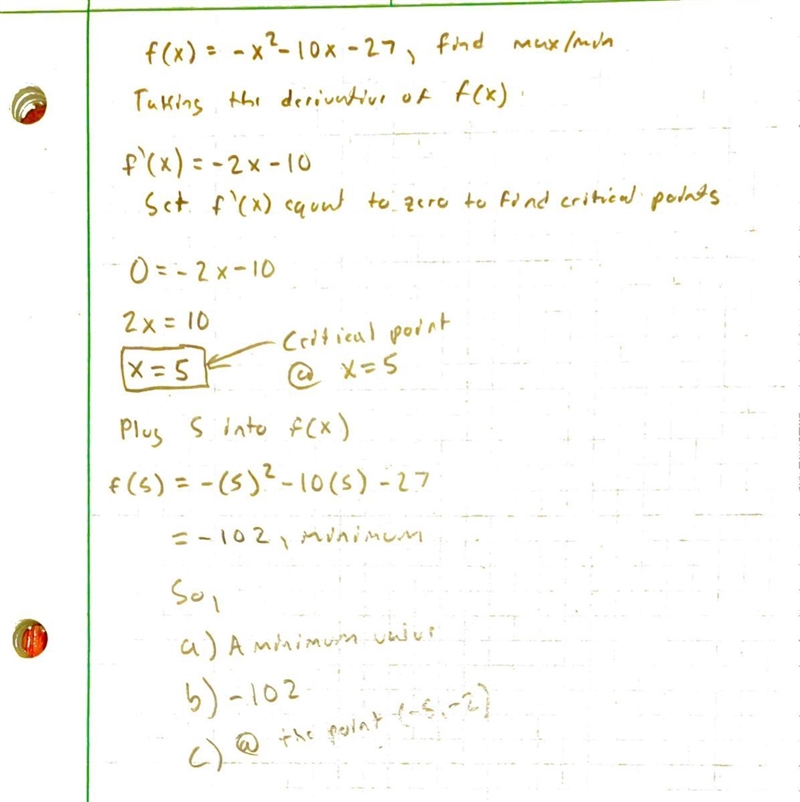 f(x) = -x²-10x-27, find max/min
Taking the derivative of f(x).
f'(x) = -2x-10
Set f'(x) equal to zero to find critical points
0 = -2x-10
2x = 10
x = 5
Critical point
@ x=5
Plug 5 into f(x)
f(5) = -(5)²-10(5)-27
= -102, minimum
So,
a) A minimum value
b) -102
c) @ the point (-5,-2)